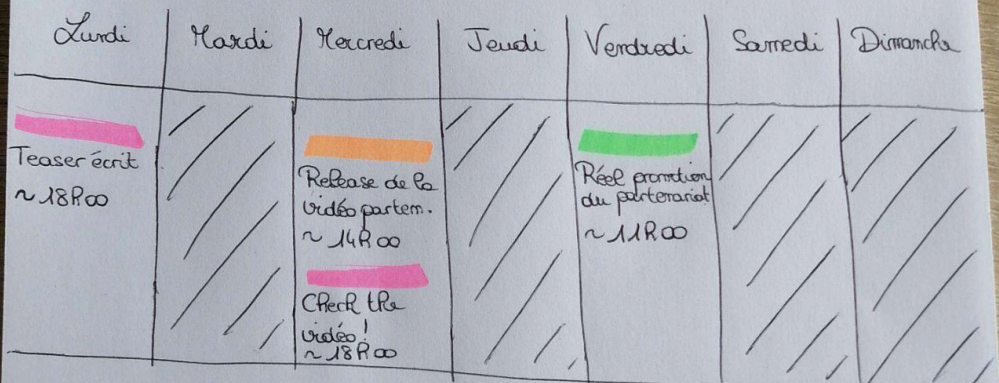 Lundi
Mardi
Mercredi
Jeudi
Vendredi
Samedi
Dimanche
Teaser écrit
~ 18h00
Release de la
vidéo parten.
~ 14h00
Check the
vidéo!
~ 18h00
Réel promotion
du partenariat
~ 11h00